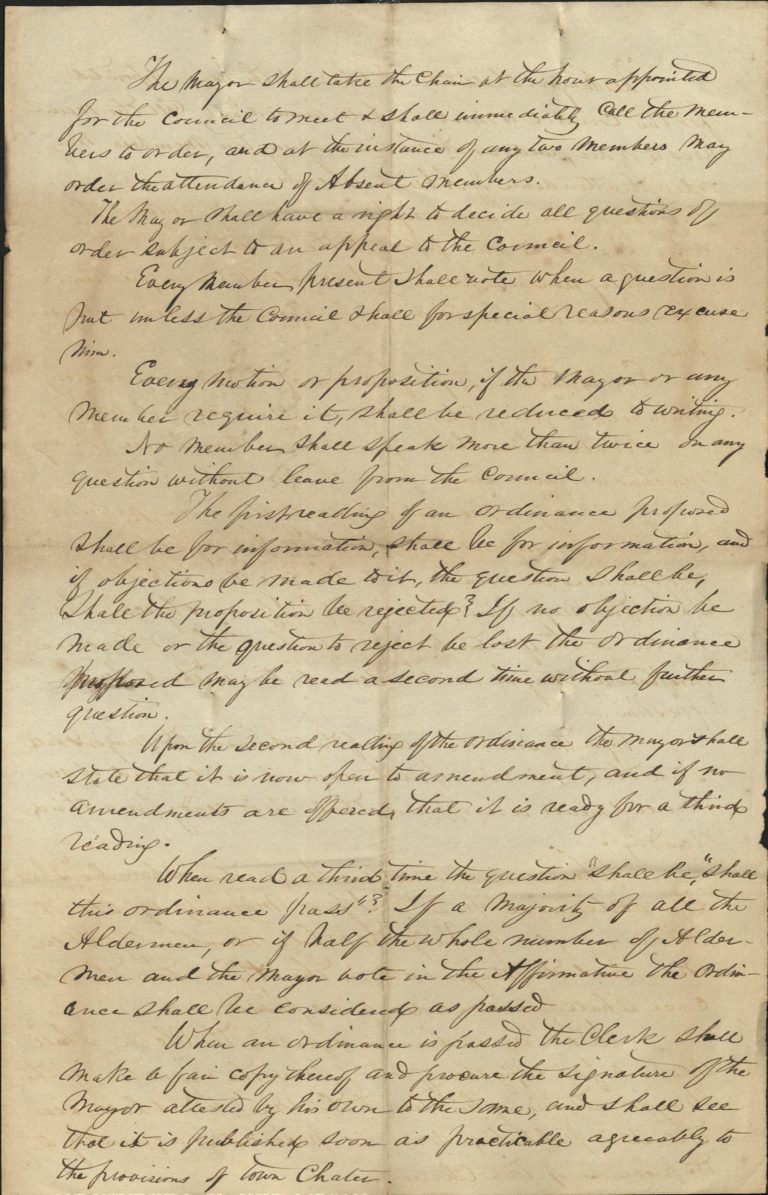 The Mayor shall take the Chair at the hour appointed
for the Council to meet & shall immediately Call the Mem-
bers to order, and at the instance of any two Members May
order the attendance of Absent Members.
The Mayor shall have a right to decide all questions of
order subject to an appeal to the Council.
Every Member present shall vote when a question is
put unless the Council shall for special reasons excuse
him.
Every Motion or proposition, if the Mayor or any
Member require it, shall be reduced to writing.
No Member shall speak more than twice on any
question without leave from the Council.
The first reading of an ordinance proposed
shall be for information, shall be for information, and
if objections be made to it, the question shall be,
Shall the proposition be rejected? If no objection be
made or the question to reject be lost the ordinance
proposed may be read a second time without further
question.
Upon the second reading of the ordinance the Mayor shall
state that it is now open to amendment, and if no
amendments are offered, that it is ready for a third
reading.
When read a third time the question "shall be, "shall
this ordinance pass"? If a Majority of all the
Aldermen, or if half the whole number of Alder-
men and the Mayor vote in the Affirmative the ordin-
ance shall be considered as passed
When an ordinance is passed the Clerk shall
make a fair copy thereof and procure the signature of the
Mayor attested by his own to the same, and shall see
that it is published soon as practicable agreeably to
the provisions of town Chater.